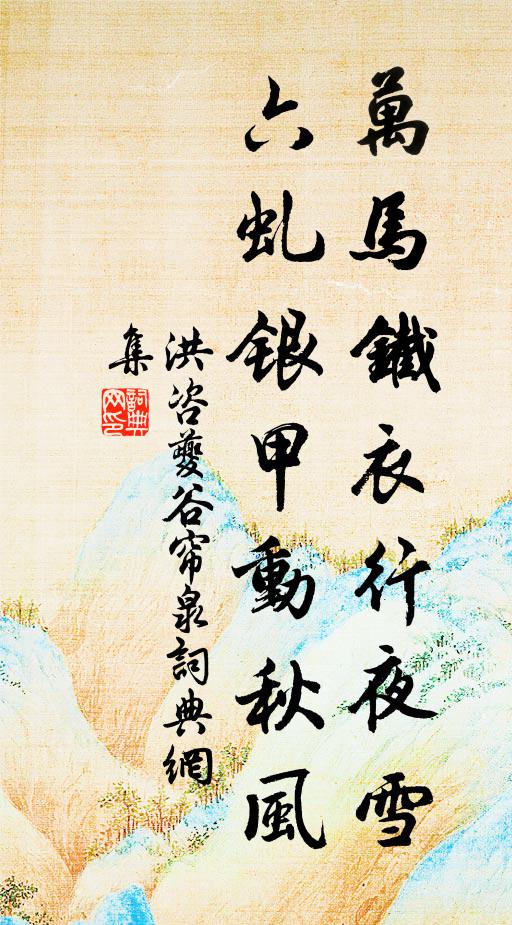 萬馬鐵衣行夜雪
六虬銀甲動秋風
洪咨夔谷帘泉詞典網
集
詞典网印